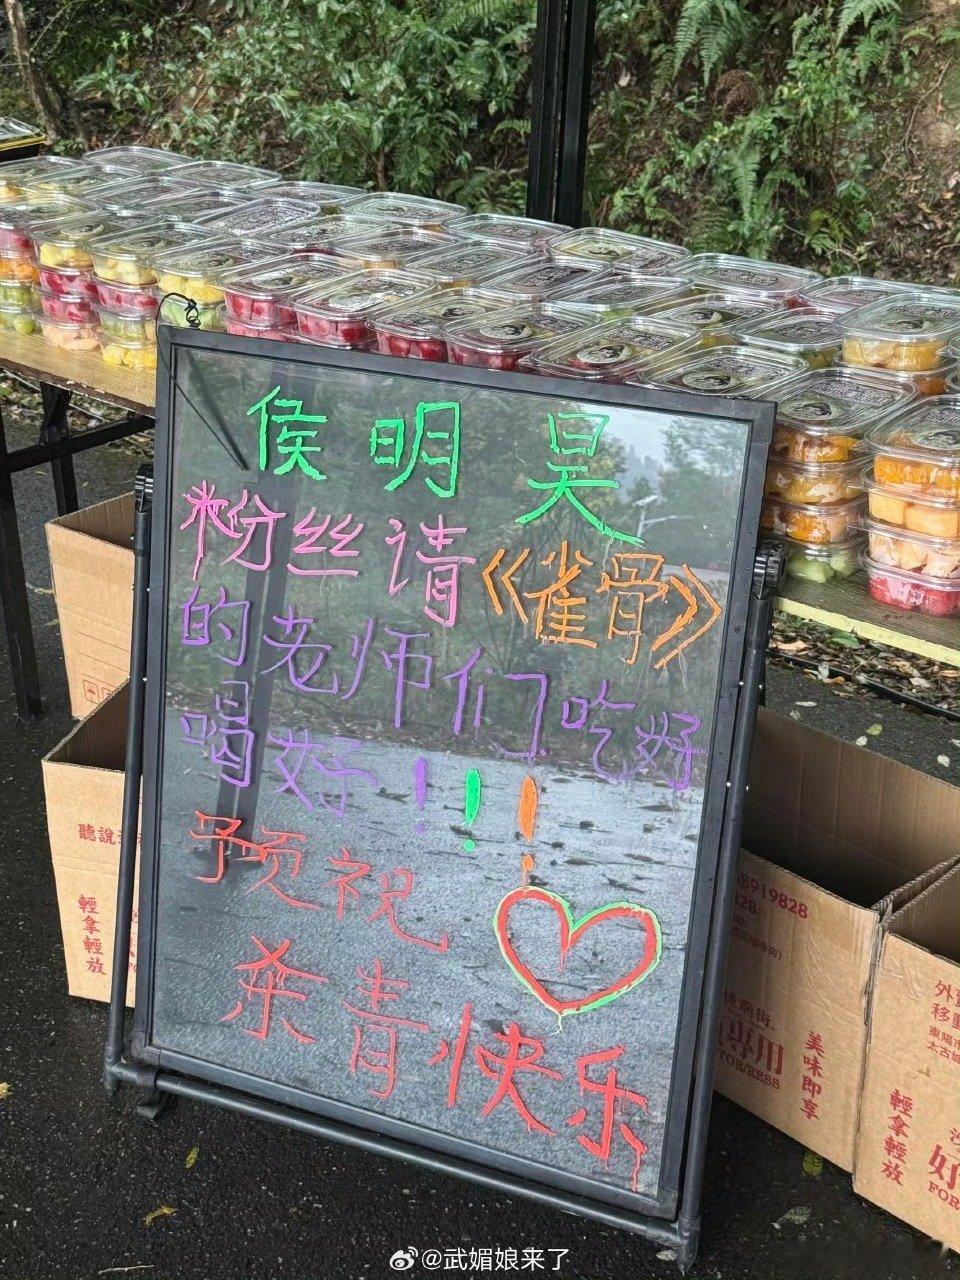 侯明昊
粉丝请《雀骨》
的老师们吃好
喝好!!!
预祝
杀青快乐
聽說
輕拿輕放
8919828
828
專用
FOR/RESS
美味即享
輕拿輕放
外
移動
東陽市
太古城
好
FOR
@武媚娘来了